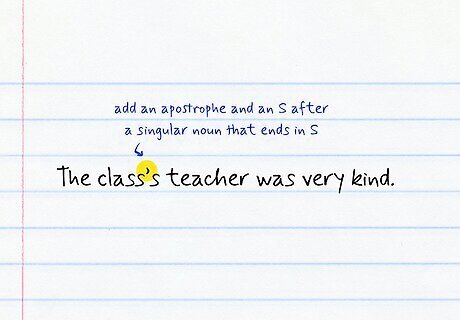 add an apostrophe and an S after
a singular noun that ends in S
The class's teacher was very kind.